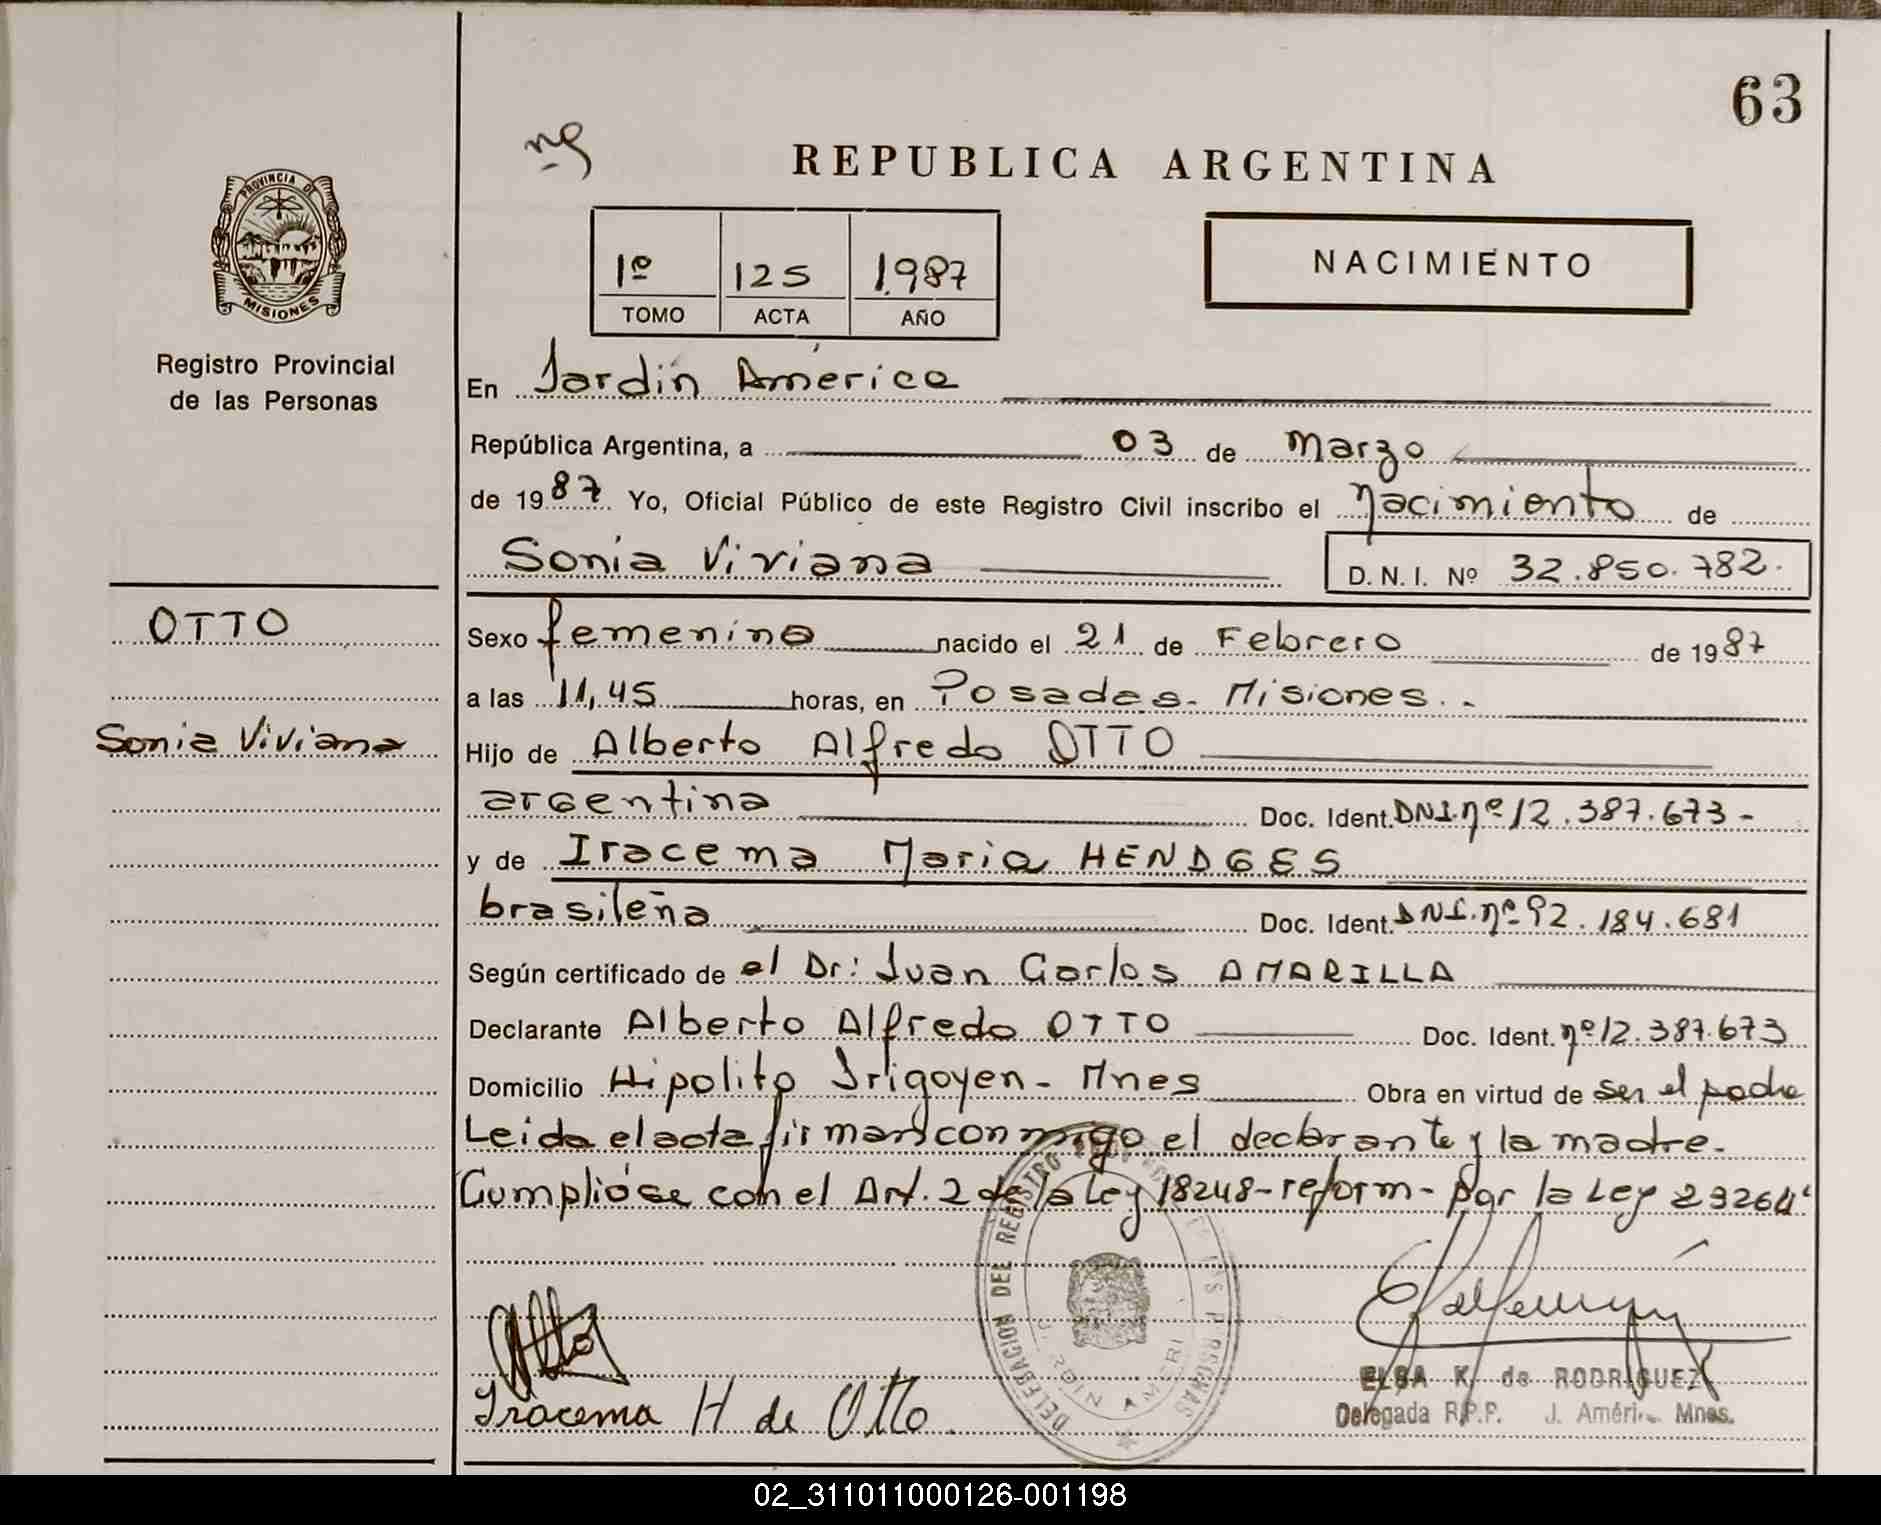 63
ng
REPUBLICA ARGENTINA
PROVINCIA DE
MISIONES
1º 125 1.987
TOMO ACTA AÑO
NACIMIENTO
Registro Provincial
de las Personas
En Jardín América
República Argentina, a 03 de Marzo
de 1987 Yo, Oficial Público de este Registro Civil inscribo el nacimiento de
Sonia Viviana D. N. I. Nº 32.850.782.
OTTO
Sonia Viviana
Sexo femenino nacido el 21 de Febrero de 1987
a las 11,45 horas, en Posadas - Misiones..
Hijo de Alberto Alfredo OTTO
argentina Doc. Ident. DNI. nº 12.387.673-
y de Iracema Maria HENDGES
brasileña Doc. Ident. DNI. nº 92.184.681
Según certificado de el Dr: Juan Carlos AMARILLA
Declarante Alberto Alfredo OTTO Doc. Ident. nº 12.387.673
Domicilio Hipolito Irigoyen - Mnes Obra en virtud de ser el padre
Leida el acta firman conmigo el declarante y la madre.
Cumplióse con el Art. 2 de la Ley 18248-reform- por la Ley 23264.
DELEGACION DEL REGISTRO DE LAS PERSONAS
JARDIN AMERI
Otto
Iracema H de Otto
ELSA K. de RODRIGUEZ
Delegada R.P.P. J. Améri Mnes.
02_311011000126-001198